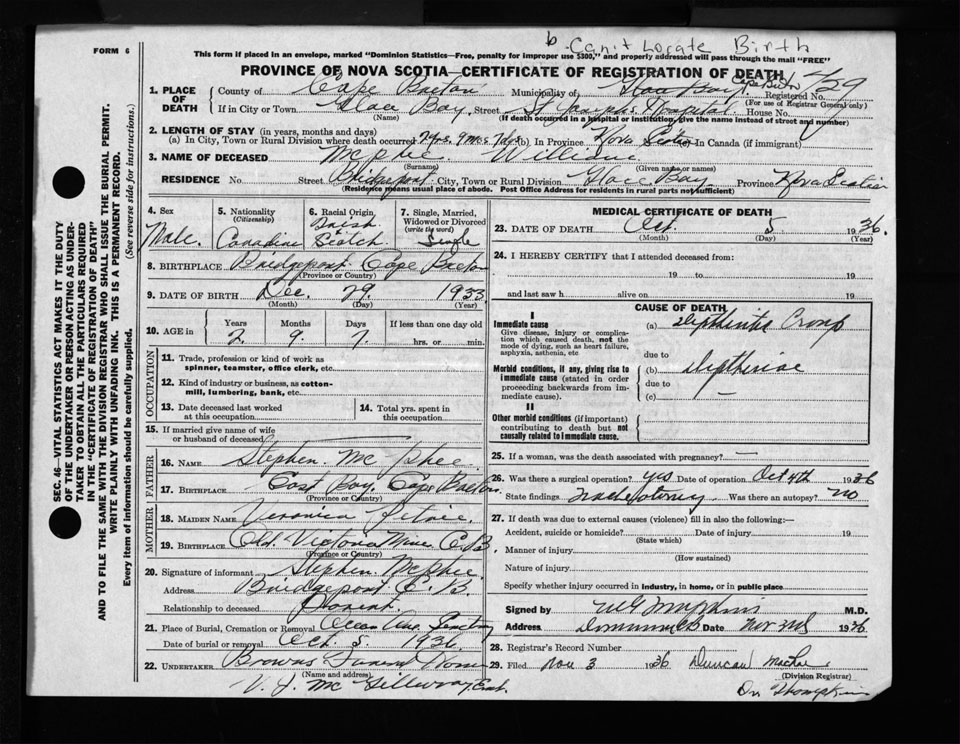 b Can't Locate Birth
FORM 6
This form if placed in an envelope, marked "Dominion Statistics—Free, penalty for improper use $300," and properly addressed will pass through the mail "FREE"
PROVINCE OF NOVA SCOTIA—CERTIFICATE OF REGISTRATION OF DEATH
SEC. 46—VITAL STATISTICS ACT MAKES IT THE DUTY
OF THE UNDERTAKER OR PERSON ACTING AS UNDER-
TAKER TO OBTAIN ALL THE PARTICULARS REQUIRED
IN THE "CERTIFICATE OF REGISTRATION OF DEATH"
AND TO FILE THE SAME WITH THE DIVISION REGISTRAR WHO SHALL ISSUE THE BURIAL PERMIT.
WRITE PLAINLY WITH UNFADING INK. THIS IS A PERMANENT RECORD.
Every item of information should be carefully supplied. (See reverse side for instructions.)
1. PLACE OF DEATH
County of Cape Breton Municipality of Glace Bay Registered No. 29
(For use of Registrar General only)
If in City or Town Glace Bay Street St Josephs Hospital House No.
(Name) (If death occurred in a hospital or institution, give the name instead of street and number)
2. LENGTH OF STAY (in years, months and days)
(a) In City, Town or Rural Division where death occurred 2 yrs. 9 mos 7 dys (b) In Province Nova Scotia In Canada (if immigrant)
3. NAME OF DECEASED McPhee William
(Surname) (Given name or names)
RESIDENCE No. Street Bridgeport City, Town or Rural Division Glace Bay Province Nova Scotia
(Residence means usual place of abode. Post Office Address for residents in rural parts not sufficient)
4. Sex Male.
5. Nationality (Citizenship) Canadian
6. Racial Origin, Irish Scotch
7. Single, Married, Widowed or Divorced (write the word) Single
8. BIRTHPLACE Bridgeport Cape Breton
(Province or Country)
9. DATE OF BIRTH Dec. 29 1933
(Month) (Day) (Year)
10. AGE in Years Months Days If less than one day old
2. 9. 7. hrs. or min.
OCCUPATION
11. Trade, profession or kind of work as
spinner, teamster, office clerk, etc.
12. Kind of industry or business, as cotton-
mill, lumbering, bank, etc.
13. Date deceased last worked
at this occupation
14. Total yrs. spent in
this occupation
15. If married give name of wife
or husband of deceased
FATHER
16. NAME Stephen. Mc Phee.
17. BIRTHPLACE East Bay, Cape Breton.
(Province or Country)
MOTHER
18. MAIDEN NAME Veronica
19. BIRTHPLACE Old. Victoria Mine C.B.
(Province or Country)
20. Signature of informant Stephen. McPhee.
Address Bridgeport C.B.
Relationship to deceased Parent.
21. Place of Burial, Cremation or Removal Ocean Ave.
Date of burial or removal Oct. 5. 1936.
22. UNDERTAKER Browns Funeral Home
(Name and address)
V. J. Mc Gillivray Emb.
MEDICAL CERTIFICATE OF DEATH
23. DATE OF DEATH Oct. 5 1936.
(Month) (Day) (Year)
24. I HEREBY CERTIFY that I attended deceased from:
19 to 19
and last saw h alive on 19
CAUSE OF DEATH
I
Immediate cause
Give disease, injury or complica-
tion which caused death, not the
mode of dying, such as heart failure,
asphyxia, asthenia, etc
(a) Croup
due to
Morbid conditions, if any, giving rise to
immediate cause (stated in order
proceeding backwards from im-
mediate cause).
(b) Diptheriae
due to
(c) —
II
Other morbid conditions (if important)
contributing to death but not
causally related to immediate cause.
25. If a woman, was the death associated with pregnancy? —
26. Was there a surgical operation? yes Date of operation Oct 4th 1936
State findings Tracheotomy Was there an autopsy? no
27. If death was due to external causes (violence) fill in also the following:—
Accident, suicide or homicide? Date of injury 19
(State which)
Manner of injury
(How sustained)
Nature of injury
Specify whether injury occurred in industry, in home, or in public place
Signed by M.D.
Address Dominion CB Date Nov 2nd 1936
28. Registrar's Record Number
29. Filed Nov 3 1936 Duncan MacRae
(Division Registrar)
Dr Thompkins